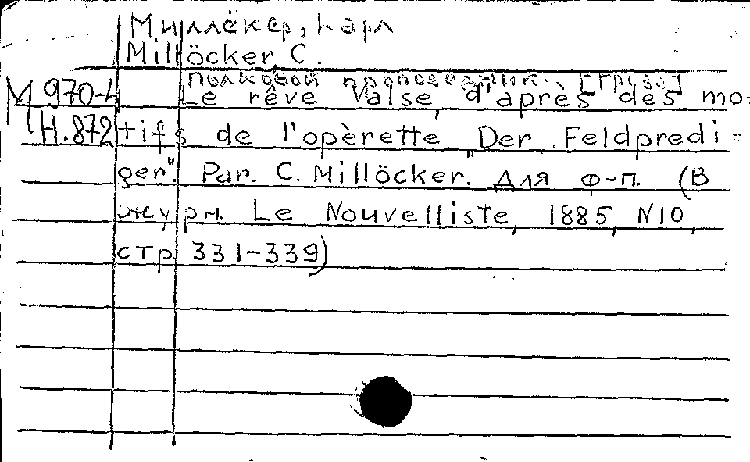 Миллёкер, Карл
Millöcker, C.
Полковой проповедник. [Грёзы]
М 970-4 Le rêve Valse, d'après des mo=
Н.872 tifs de l'opèrette „Der Feldpredi=
ger". Par. C. Millöcker. Для ф-п. (В
журн. Le Nouvelliste, 1885, N10,
стр 331-339)